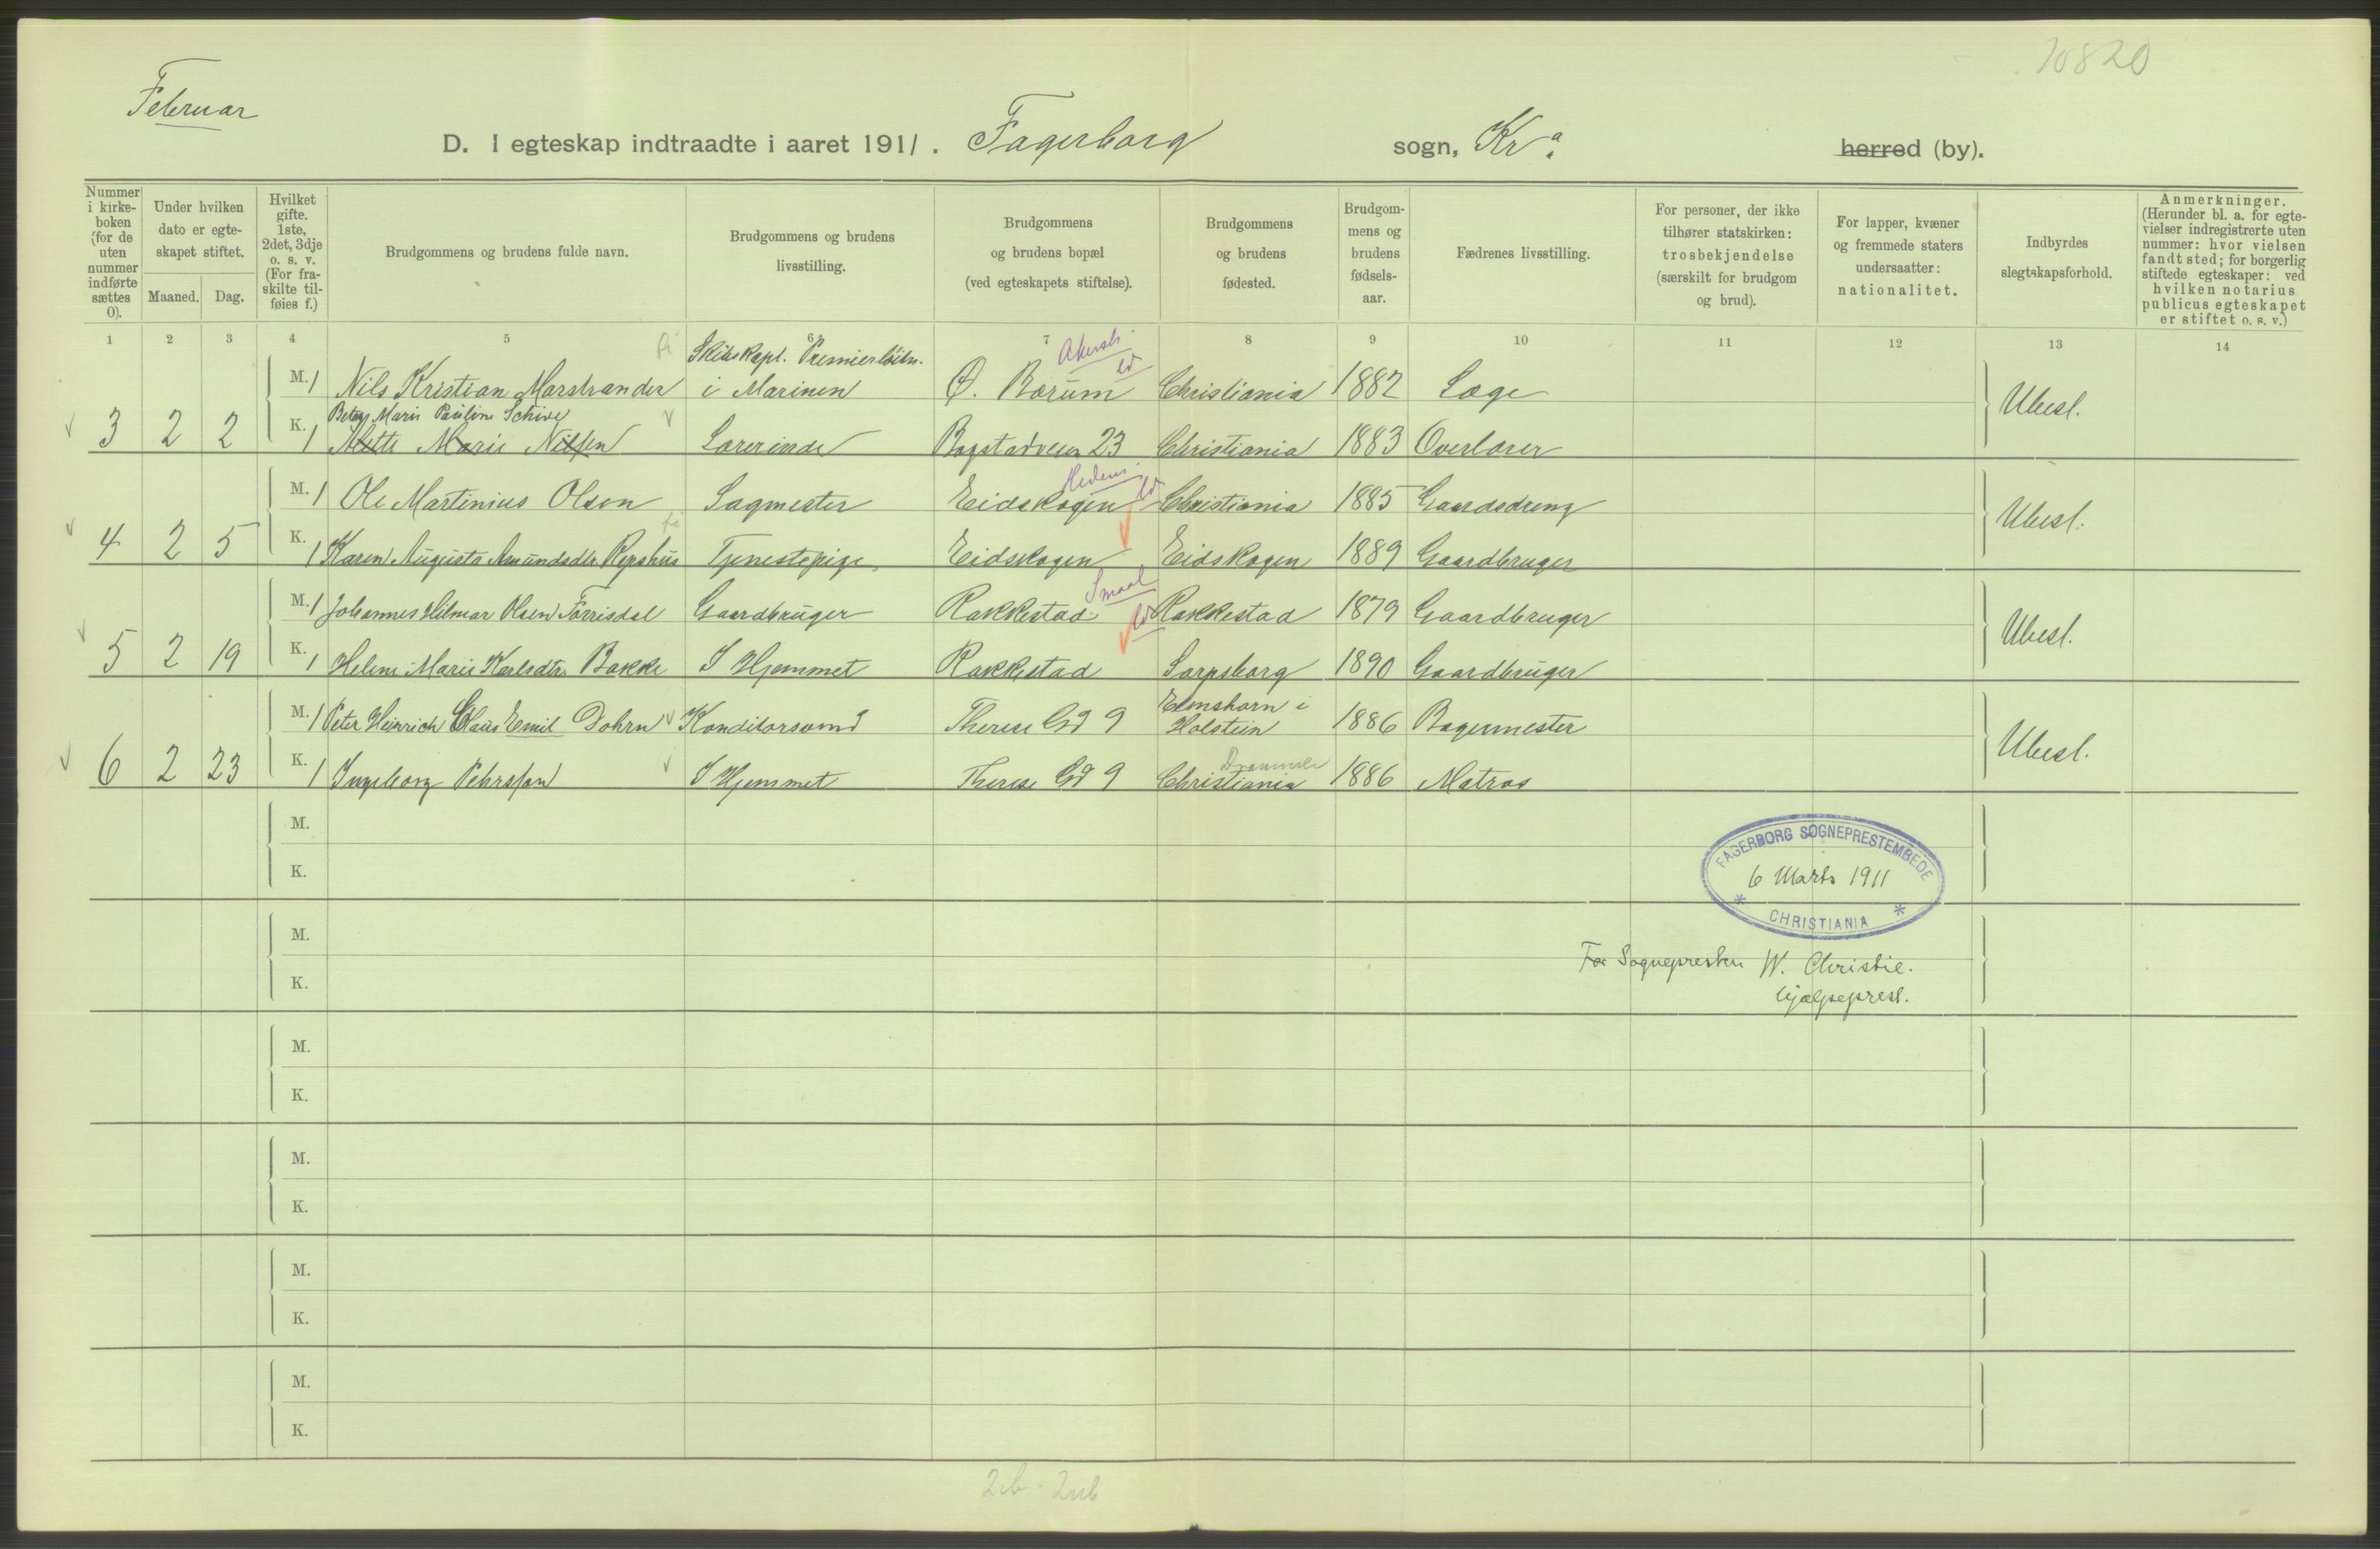 10820
Februar
D. I egteskap indtraadte i aaret 1911. Fagerborg sogn, Kra. herred (by).
Nummer i kirke-boken (for de uten nummer indførte sættes 0).
Under hvilken dato er egte-skapet stiftet.
Maaned. Dag.
Hvilket gifte. 1ste, 2det, 3dje o. s. v. (For fra-skilte til-føies f.)
Brudgommens og brudens fulde navn.
Brudgommens og brudens livsstilling.
Brudgommens og brudens bopæl (ved egteskapets stiftelse).
Brudgommens og brudens fødested.
Brudgom-mens og brudens fødsels-aar.
Fædrenes livsstilling.
For personer, der ikke tilhører statskirken: trosbekjendelse (særskilt for brudgom og brud).
For lapper, kvæner og fremmede staters undersaatter: nationalitet.
Indbyrdes slegtskapsforhold.
Anmerkninger. (Herunder bl. a. for egte-vielser indregistrerte uten nummer: hvor vielsen fandt sted; for borgerlig stiftede egteskaper: ved hvilken notarius publicus egteskapet er stiftet o. s. v.)
1 2 3 4 5 6 7 8 9 10 11 12 13 14
Skibskapt. Premierløitn. Akersh
M. 1 Nils Kristian Marstrander i Marinen Ø. Bærum Christiania 1882 Læge
Betzy Marie Pauline Schive
3 2 2 K. 1 Mette Marie Nilsen Lærerinde Bogstadveien 23 Christiania 1883 Overlærer Ubesl.
Hedem.
M. 1 Ole Martinius Olsen Sagmester Eidskogen Christiania 1885 Gaardsdreng
4 2 5 K. 1 Karen Augusta Amundsdtr. Repshus Tjenestepige Eidskogen Eidskogen 1889 Gaardbruger Ubesl.
Smaal
M. 1 Johannes Hilmar Olsen Førrisdal Gaardbruger Rakkestad Rakkestad 1879 Gaardbruger
5 2 19 K. 1 Helene Marie Karlsdtr. Bakke I Hjemmet Rakkestad Sarpsborg 1890 Gaardbruger Ubesl.
M. 1 Peter Heinrich Claus Emil Dohrn Konditorsvend Therese Gd 9 Elmshorn i Holstein 1886 Bagermester
Drammen
6 2 23 K. 1 Ingeborg Pehrsson I Hjemmet Therese Gd 9 Christiania 1886 Matros Ubesl.
M.
K.
FAGERBORG SOGNEPRESTEMBEDE
6 Marts 1911
* CHRISTIANIA *
M.
For Sognepresten W. Christie.
K.
hjælpeprest.
M.
K.
M.
K.
M.
K.
M.
K.